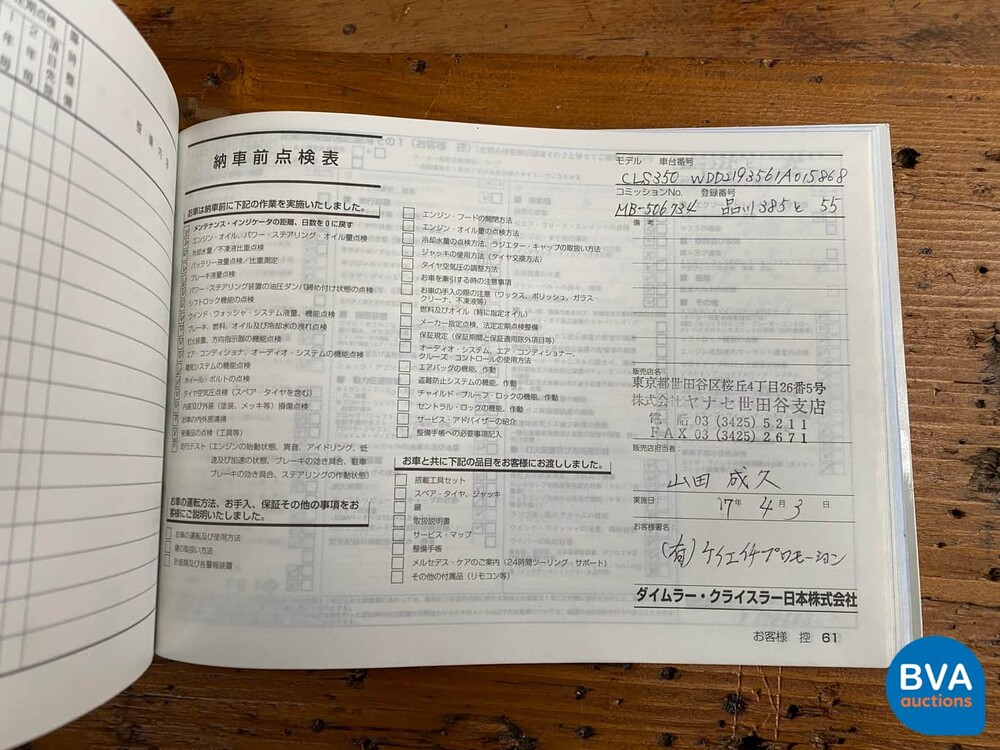 納車前点検表
お車は納車前に下記の作業を実施いたしました。
メンテナンス・インジケータの距離、日数を0に戻す
エンジン・オイル、パワー・ステアリング・オイル量点検
冷却水量/不凍液比重点検
バッテリー液量点検/比重測定
ブレーキ液量点検
パワー・ステアリング装置の油圧ダンパ締め付け状態の点検
シフトロック機能の点検
ウインド・ウォッシャ・システム液量、機能点検
ブレーキ、燃料、オイル及び冷却水の洩れ点検
灯火装置、方向指示器の機能点検
エア・コンディショナ、オーディオ・システムの機能点検
電気システムの機能点検
ホイール・ボルトの点検
タイヤ空気圧点検(スペア・タイヤを含む)
内装及び外装(塗装、メッキ等)損傷点検
お車の内外部清掃
装備品の点検(工具等)
走行テスト(エンジンの始動状態、異音、アイドリング、低
速及び加速の状態、ブレーキの効き具合、駐車
ブレーキの効き具合、ステアリングの作動状態)
お車の運転方法、お手入、保証その他の事項をお
客様にご説明いたしました。
お車の運転及び使用方法
鍵の取扱い方法
計器類及び各警報装置
エンジン・フードの開閉方法
エンジン・オイル量の点検方法
冷却水量の点検方法、ラジエター・キャップの取扱い方法
ジャッキの使用方法(タイヤ交換方法)
タイヤ空気圧の調整方法
お車を牽引する時の注意事項
お車の手入の際の注意(ワックス、ポリッシュ、ガラス・
クリーナ、不凍液等)
燃料及びオイル(特に指定オイル)
メーカー指定点検、法定定期点検整備
保証規定(保証期間と保証適用除外項目等)
オーディオ・システム、エア・コンディショナー、
クルーズ・コントロールの使用方法
エアバッグの機能、作動
盗難防止システムの機能、作動
チャイルド・プルーフ・ロックの機能、作動
セントラル・ロックの機能、作動
サービス・アドバイザーの紹介
整備手帳への必要事項記入
お車と共に下記の品目をお客様にお渡ししました。
搭載工具セット
スペア・タイヤ、ジャッキ
鍵
取扱説明書
サービス・マップ
整備手帳
メルセデス・ケアのご案内(24時間ツーリング・サポート)
その他の付属品(リモコン等)
モデル 車台番号
CLS350 WDD2193561A015868
コミッションNo. 登録番号
MB-506734 品川385と 55
備考
販売店名
東京都世田谷区桜丘4丁目26番5号
株式会社ヤナセ世田谷支店
電 話 03 (3425) 5211
FAX 03 (3425) 2671
販売店担当者
山田 成久
実施日: 17年 4月 3日
お客様署名:
(有)ケイエイチプロモーション
ダイムラー・クライスラー日本株式会社
お客様 控 61
BVA
auctions